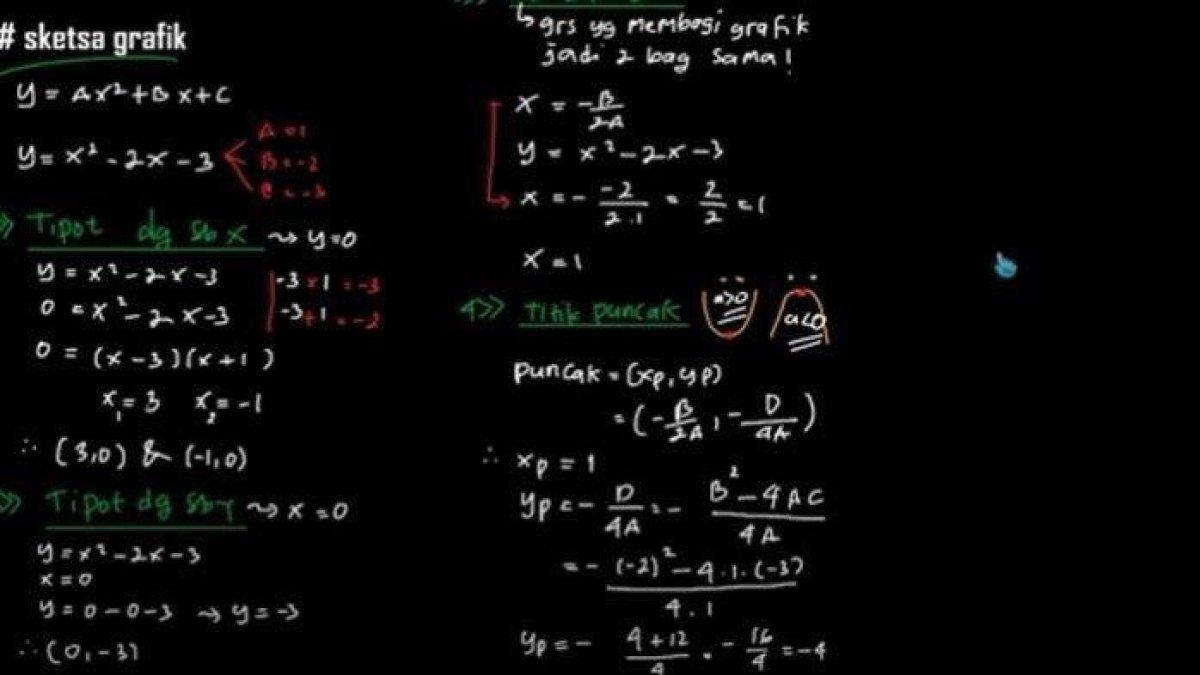 # sketsa grafik
y = Ax² + Bx + C
y = x² - 2x - 3
A = 1
B = -2
C = -3
>> Tipot dg sb x ~> y=0
y = x² - 2x - 3
0 = x² - 2x - 3
-3 × 1 = -3
-3 + 1 = -2
0 = (x - 3)(x + 1)
x₁ = 3 x₂ = -1
∴ (3,0) & (-1,0)
>> Tipot dg sb y ~> x = 0
y = x² - 2x - 3
x = 0
y = 0 - 0 - 3 → y = -3
∴ (0, -3)
↳ grs yg membagi grafik
jadi 2 bag sama!
x = -B/2A
y = x² - 2x - 3
x = - -2/2.1 = 2/2 = 1
x = 1
4>> Titik puncak
a>0
a<0
puncak = (xp, yp)
= (-B/2A, -D/4A)
∴ xp = 1
yp = - D/4A = - B² - 4AC/4A
= - (-2)² - 4.1.(-3)/4.1
yp = - 4+12/4 = - 16/4 = -4